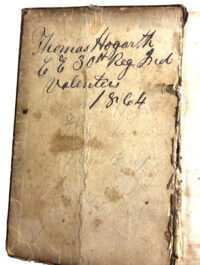 Thomas Hogarth
C E 30th Reg Ind
Valenters
1864